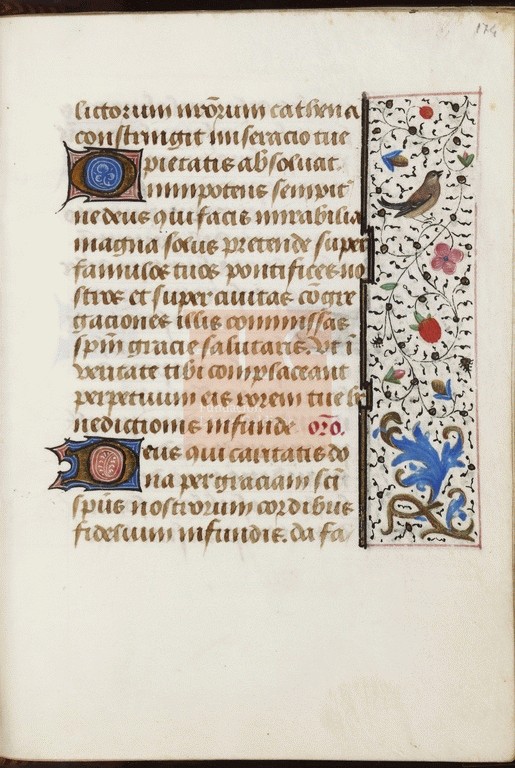 174
lictorum nr̄orum cathena
constringit miseracio tue
pietatis absoluat.
Omnipotens sempit
ne deus qui facis mirabilia
magna solus pretende super
famulos tuos pontifices no
stros et super ciuitas cōgre
gaciones illis commissas
spm̄ gracie salutaris. Vt ī
veritate tibi complaceant
perpetuum eis rorem tue be
nedictionis infunde. or̄o.
Deus qui caritatis do
na per graciam scī
spūs nostrorum cordibus
fidelium infundis. da fa